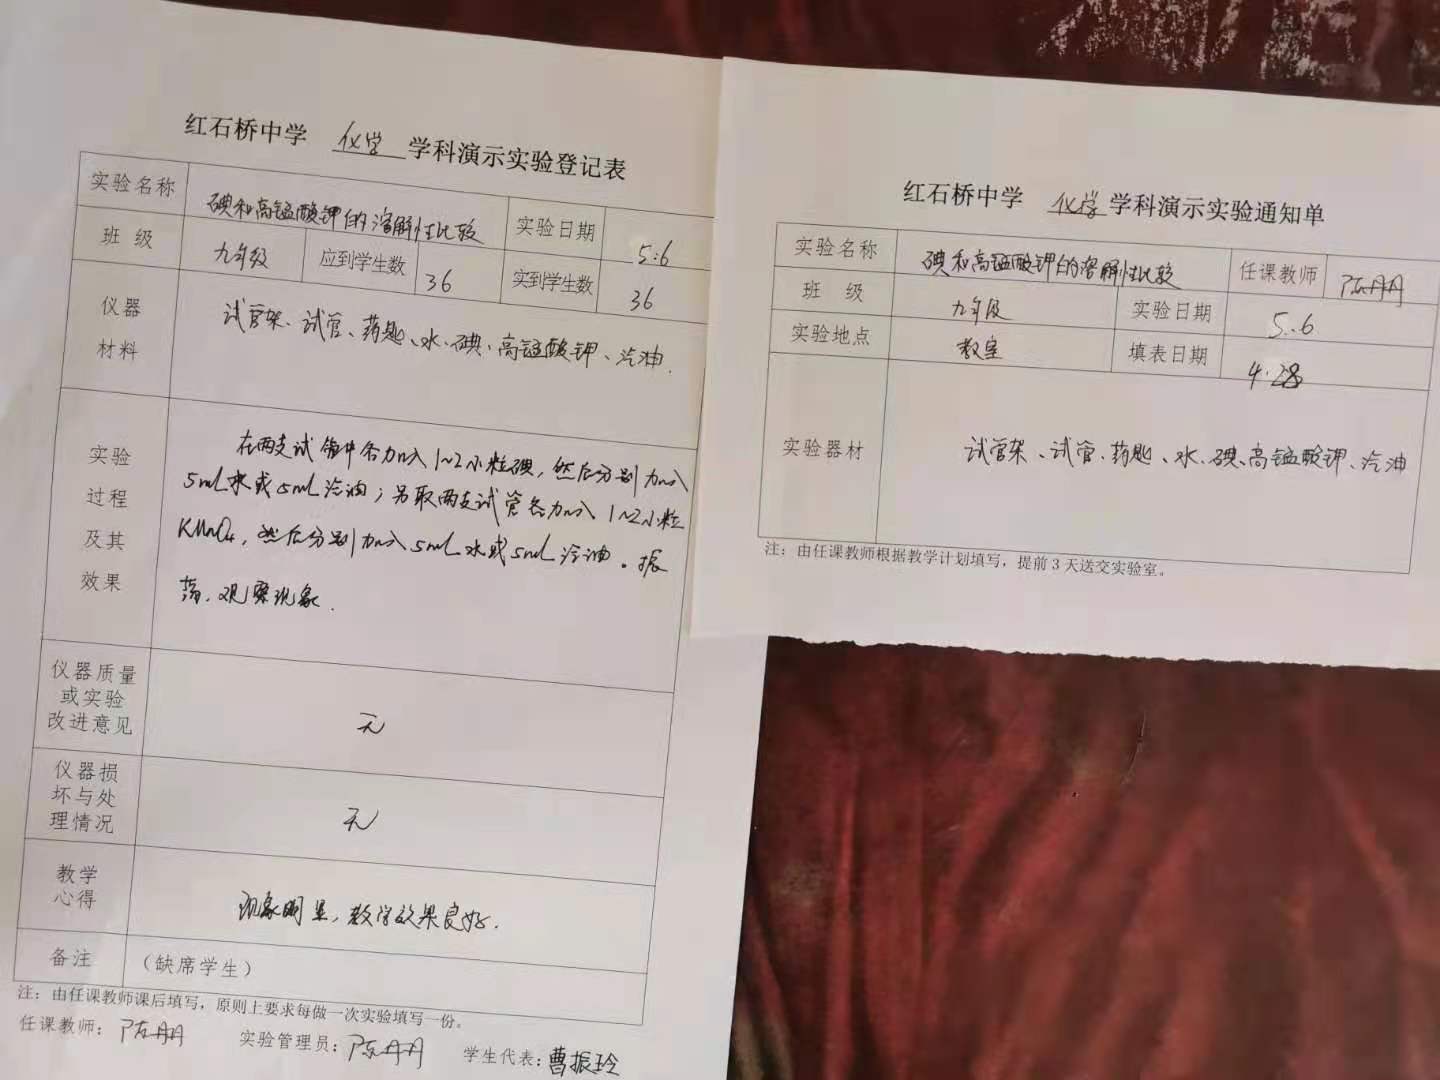 红石桥中学 化学 学科演示实验登记表
实验名称 碘和高锰酸钾的溶解性比较 实验日期 5.6
班 级 九年级 应到学生数 36 实到学生数 36
仪器
材料
试管架、试管、药匙、水、碘、高锰酸钾、汽油.
实验
过程
及其
效果
在两支试管中各加入1~2小粒碘,然后分别加入
5mL水或5mL汽油;另取两支试管各加入1~2小粒
KMnO4,然后分别加入5mL水或5mL汽油。振
荡,观察现象.
仪器质量
或实验
改进意见
无
仪器损
坏与处
理情况
无
教学
心得
现象明显,教学效果良好.
备注 (缺席学生)
注:由任课教师课后填写,原则上要求每做一次实验填写一份。
任课教师:陈丹丹 实验管理员:陈丹丹 学生代表:曹振玲
红石桥中学 化学 学科演示实验通知单
实验名称 碘和高锰酸钾的溶解性比较 任课教师 陈丹丹
班 级 九年级 实验日期 5.6
实验地点 教室 填表日期 4.28
实验器材 试管架、试管、药匙、水、碘、高锰酸钾、汽油
注:由任课教师根据教学计划填写,提前3天送交实验室。